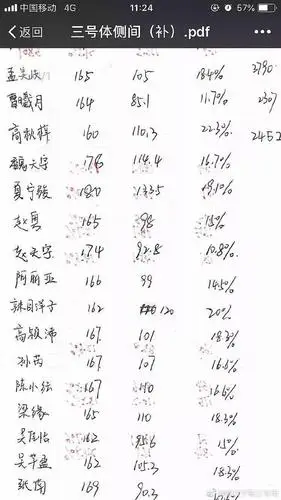 中国移动 4G 11:24 57%
返回 三号体侧间（补）.pdf
孟美岐 165 105 18.4% 2790
曹曦月 164 85.1 11.7% 2307
高秋梓 160 110.3 22.3% 2452
魏天宇 178 114.4 16.7%
夏宁骏 180 133.5 19.1%
赵粤 165 98 15%
赵天宇 174 92.8 10.8%
阿丽亚 166 99 14.5%
韩目洋子 162 120 20%
高颖沛 167 101 18.3%
孙芮 167 107 16.6%
陈小纭 167 110 16.6%
梁缘 165 110 18.3%
162 95.6 15%
吴芊盈 162 105.3 18.3%
张南 169 90.3